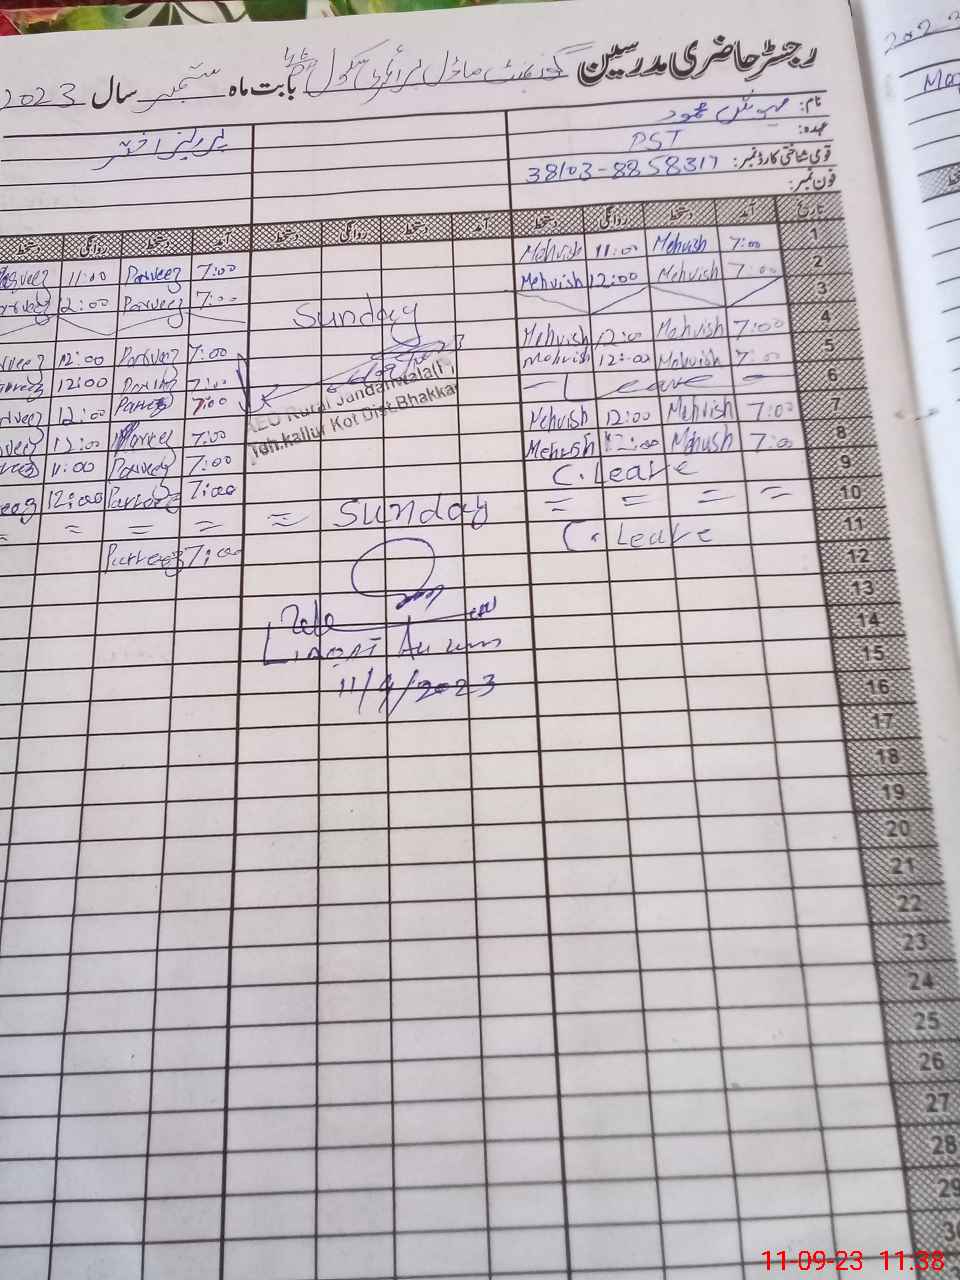 رجسٹر حاضری مدرسین گورنمنٹ ماڈل پرائمری سکول بابت ماہ ستمبر سال 2023
نام: مہوش
عہدہ: PST
قومی شناختی کارڈ نمبر: 38103-8858317
فون نمبر:
پروین اختر
تاریخ آمد دستخط روانگی دستخط آمد دستخط روانگی دستخط آمد دستخط روانگی دستخط
1 7:00 Mehvish 11:00 Mehvish 7:00 Parveez 11:00 Parveez
2 7:00 Mehvish 12:00 Mehvish 7:00 Parveez 12:00
3 Sunday
4 7:00 Mehvish 12:00 Mehvish 7:00 Parveez 12:00
5 7:00 Mehvish 12:00 Mehvish 7:00 12:00
6 Leave 7:00 Parveez 12:00
7 7:00 Mehvish 12:00 Mehvish 7:00 Parveez 12:00
8 7:00 Mehvish 12:00 Mehvish 7:00 Parveez 11:00
9 C. Leave 7:00 Parveez 12:00
10 = = = = Sunday = = = =
11 C. Leave 7:00 Parveez
AEO Rural Jandanwala
Teh.kallur Kot Dist.Bhakkar
12
13
14
15
11/9/2023
16
17
18
19
20
21
22
23
24
25
26
27
28
29
30
2023
11-09-23 11:38